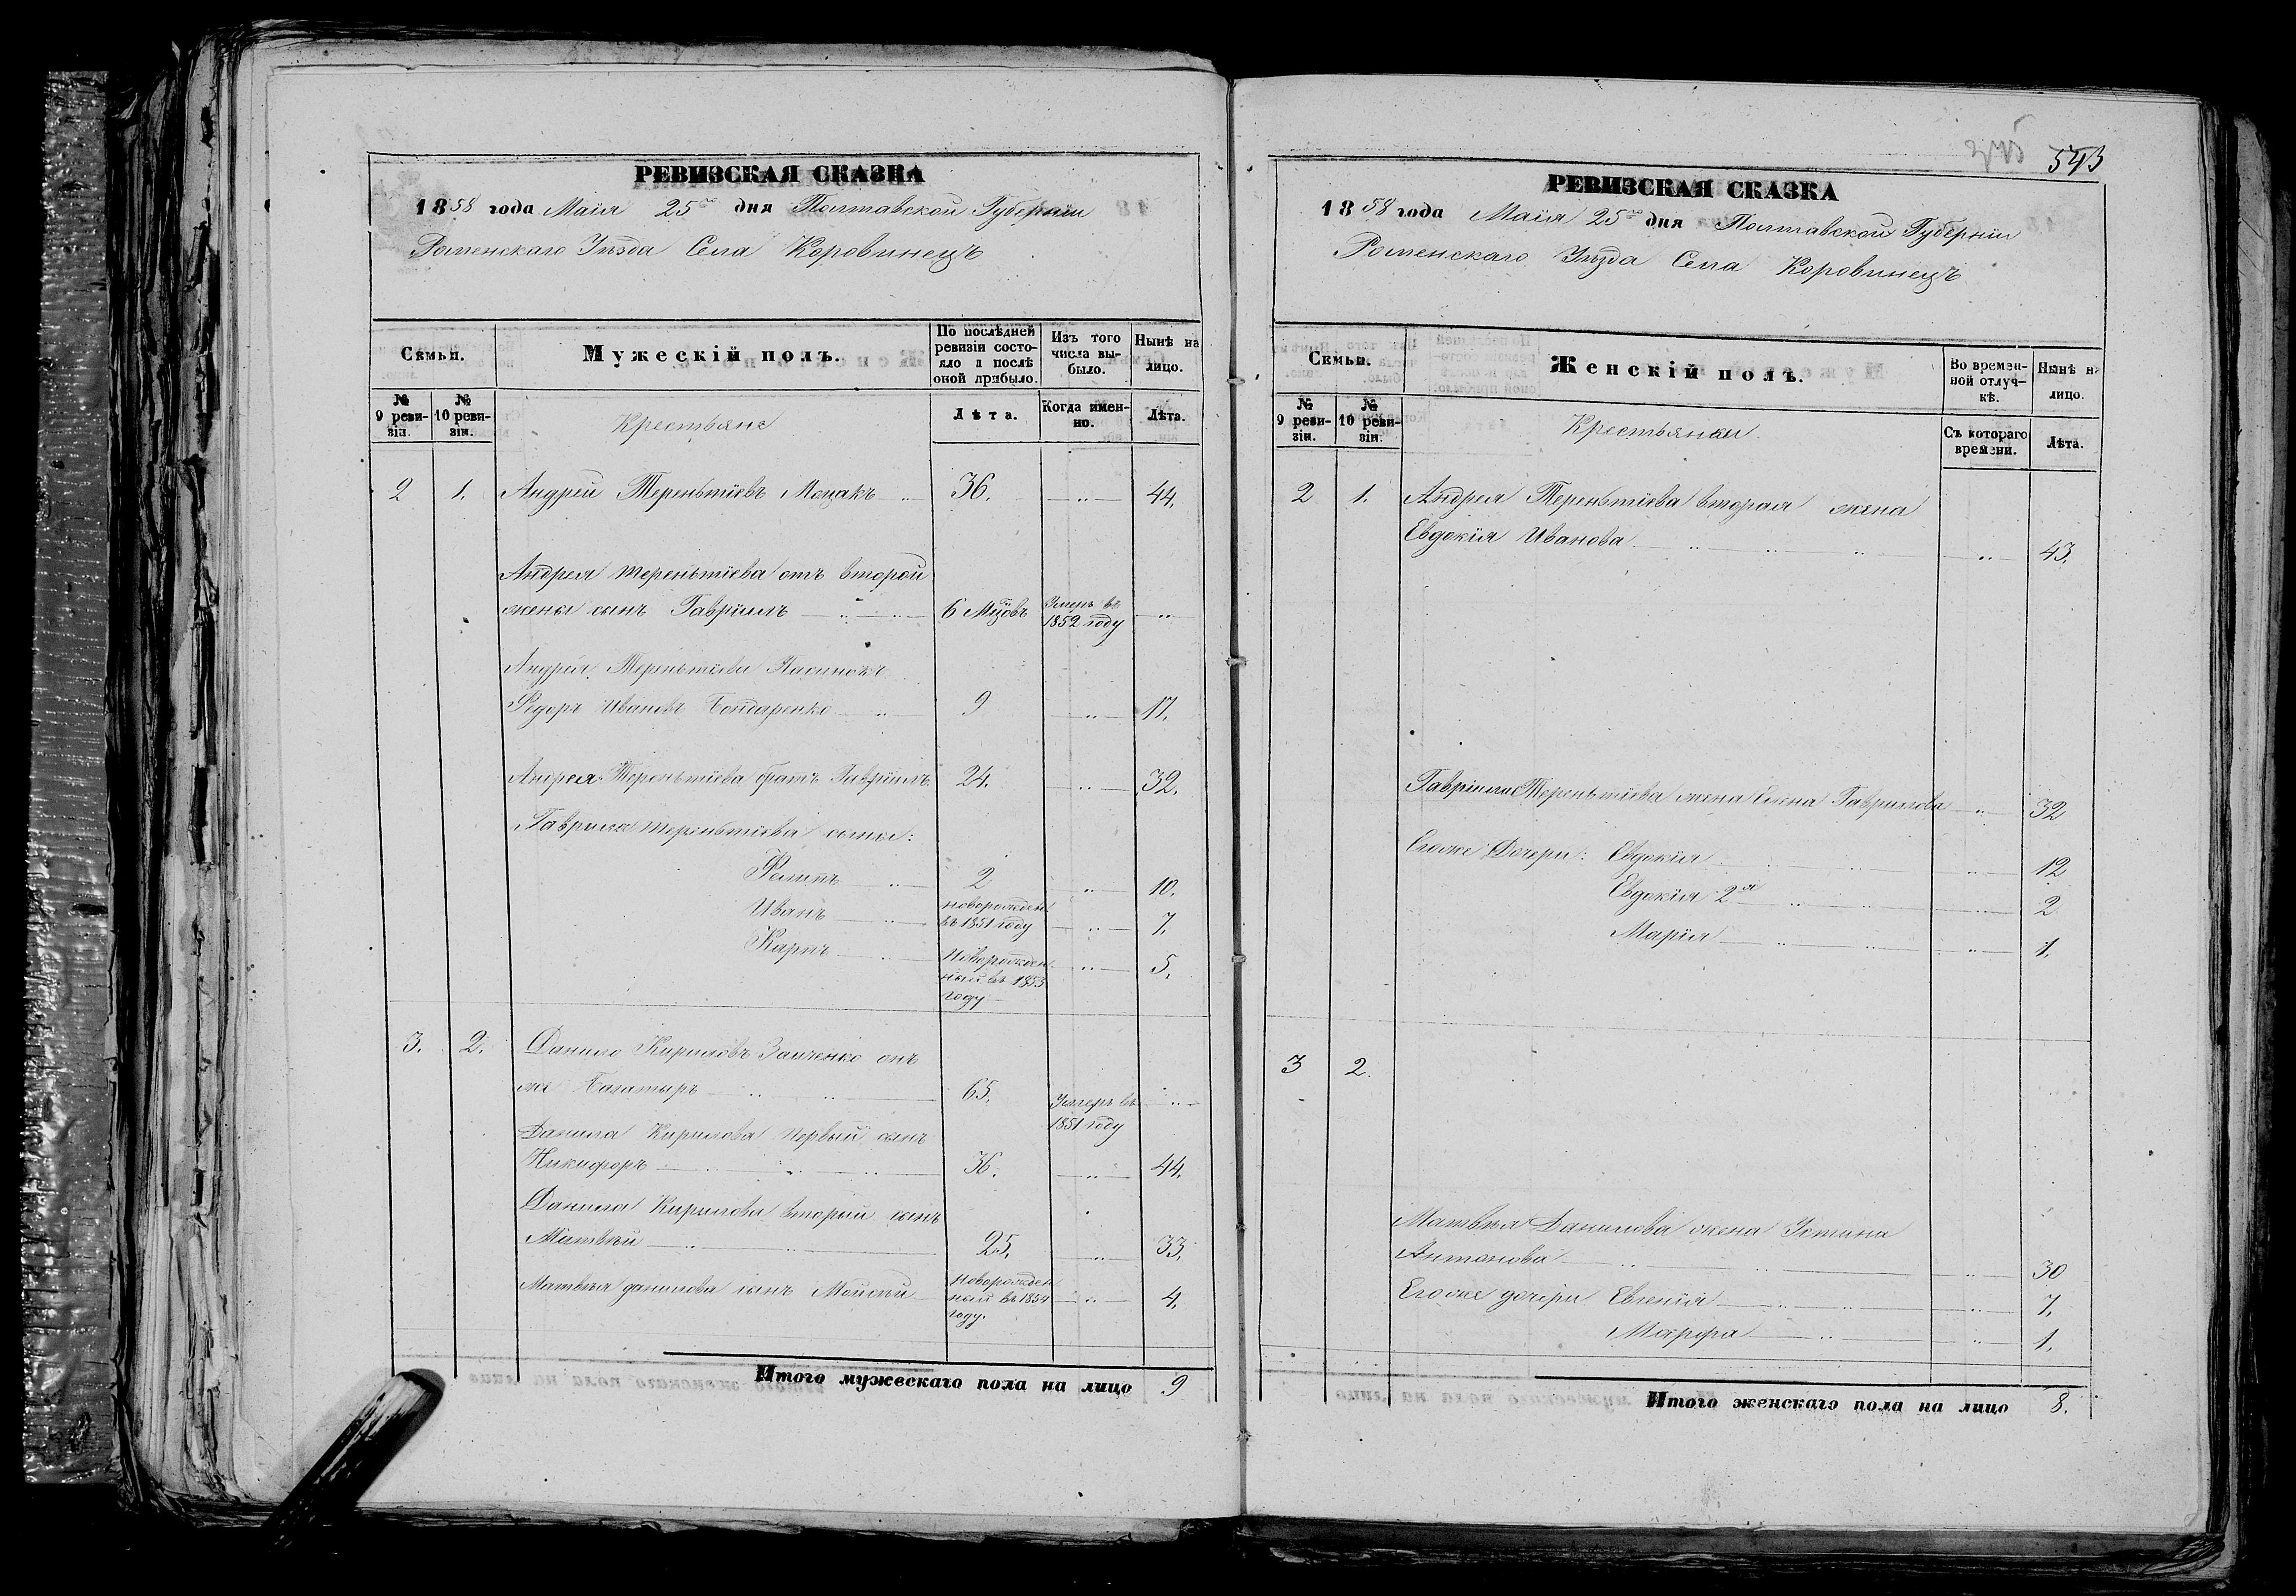 РЕВИЗСКАЯ СКАЗКА
1858 года Маія 25го дня Полтавской Губерніи
Роменскаго Уѣзда Села Коровинецъ
Семьи.
Мужескій полъ.
По послѣдней ревизіи состояло и послѣ оной прибыло.
Изъ того числа выбыло.
Нынѣ на лицо.
№ 9 ревизіи.
№ 10 ревизіи.
Крестьяне
Лѣта.
Когда именно.
Лѣта.
2 1. Андрей Терентьіевъ Мецакъ 36. 44.
Андрея терентьіева отъ второй
жены сынъ Гавріилъ 6 Мцовъ Умеръ въ 1852 году
Андрея Терентьіева Пасинокъ
Федоръ Ивановъ Бондаренко 9 17.
Андрея Терентьіева братъ Гавріилъ 24. 32.
Гаврила терентьіева сыны:
Филипъ 2 10.
Иванъ новорожден въ 1851 году 7.
Карпъ Новорожденный въ 1853 году 5.
3. 2. Данило Кириловъ Заиченко онъ
же Багатыръ 65. Умеръ въ 1851 году
Данила Кирилова первый сынъ
Никифоръ 36. 44.
Данила Кирилова вторый сынъ
Матвѣй 25. 33.
Матвѣя данилова сынъ Мойсѣй новорожденный въ 1854 году. 4.
Итого мужескаго пола на лицо 9
543
РЕВИЗСКАЯ СКАЗКА
1858 года Маія 25го дня Полтавской Губерніи
Роменскаго Уѣзда Села Коровинецъ
Семьи.
Женскій полъ.
Во временной отлучкѣ.
Нынѣ на лицо.
№ 9 ревизіи.
№ 10 ревизіи.
Крестьянки
Съ котораго времени.
Лѣта.
2 1. Андрея Терентьіева вторая жена
Евдокія Иванова 43.
Гавріила Терентьіева жена Елена Гаврилова 32
Егоже Дочери: Евдокія 12
Евдокія 2я 2
Марія 1.
3 2.
Матвѣя Данилова жена Устина
Антонова 30
Егоже дочери Евгенія 7.
Марфа 1.
Итого женскаго пола на лицо 8.